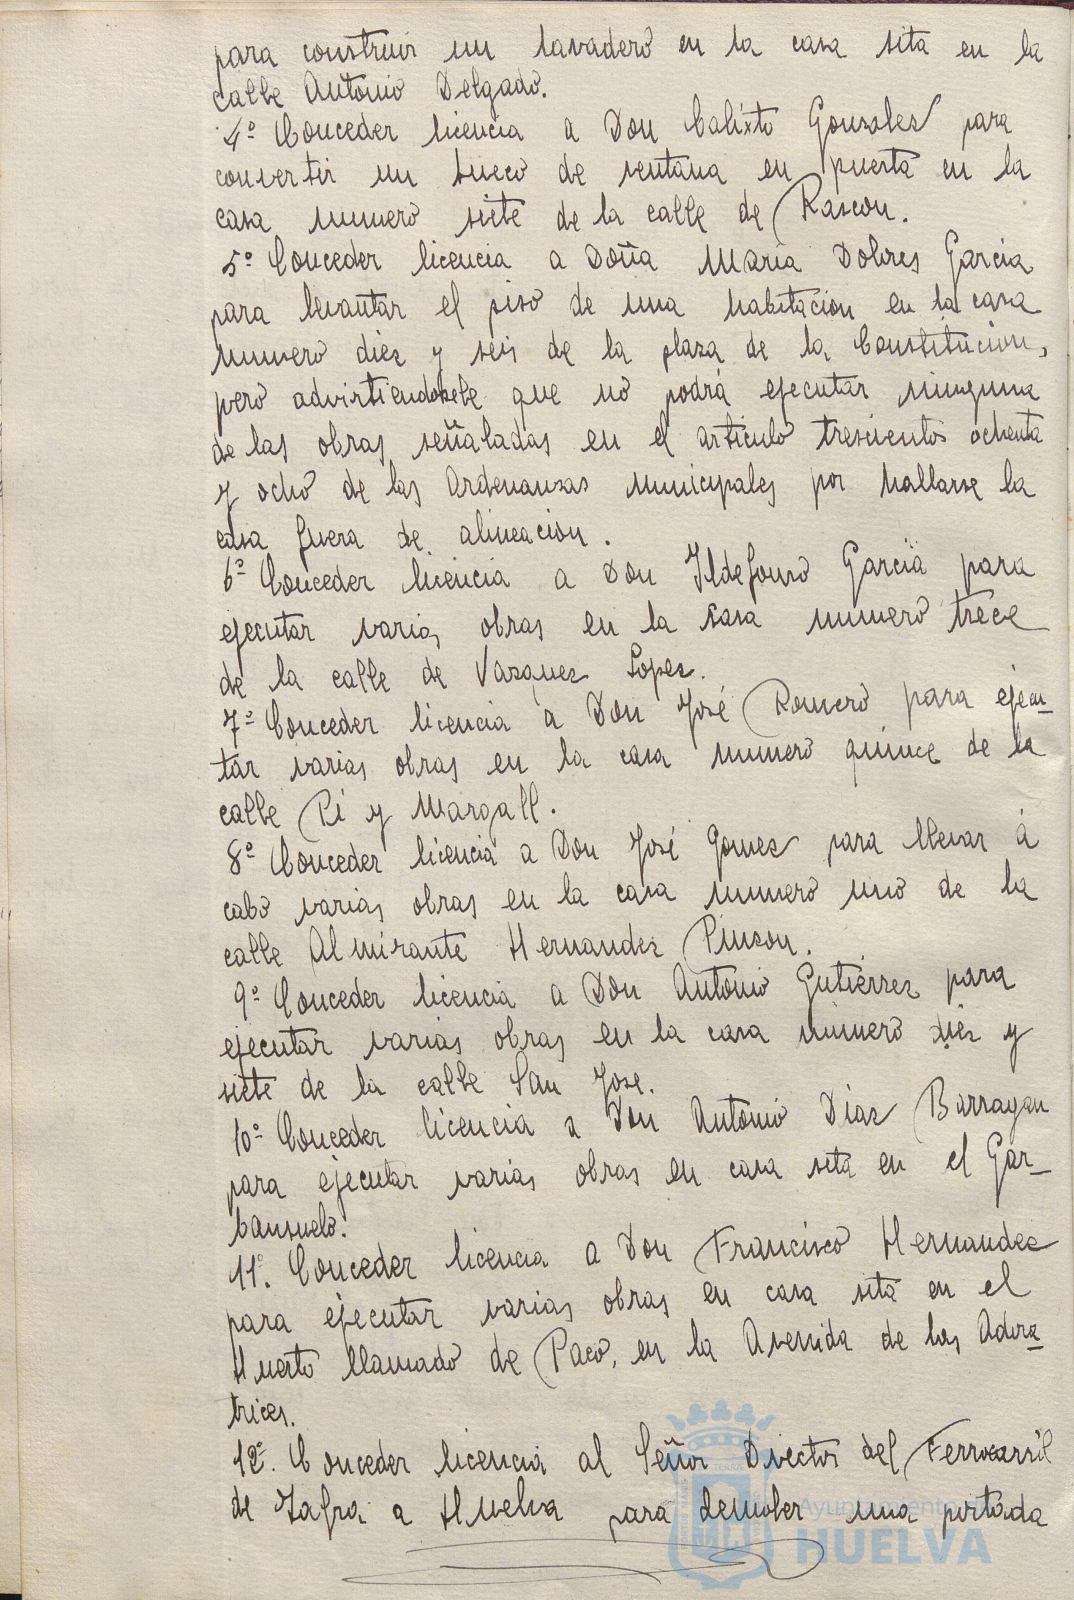 para construir un lavadero en la casa sita en la
calle Antonio Delgado.
4º Conceder licencia a Don Calixto Gonzalez para
convertir un hueco de ventana en puerta en la
casa numero siete de la calle de Rascon.
5º Conceder licencia a Doña Maria Dolores Garcia
para levantar el piso de una habitacion en la casa
numero diez y seis de la plaza de la Constitucion,
pero advirtiendosele que no podrá ejecutar ninguna
de las obras señaladas en el articulo trescientos ochenta
y ocho de las Ordenanzas municipales por hallarse la
casa fuera de alineacion.
6º Conceder licencia a Don Ildefonso Garcia para
ejecutar varias obras en la casa numero trece
de la calle de Vazquez Lopez.
7º Conceder licencia a Don José Romero para ejecu-
tar varias obras en la casa numero quince de la
calle Pí y Margall.
8º Conceder licencia a Don José Gomez para llevar á
cabo varias obras en la casa numero uno de la
calle Almirante Hernandez Pinzon.
9º Conceder licencia a Don Antonio Gutiérrez para
ejecutar varias obras en la casa numero diez y
siete de la calle San Jose.
10º Conceder licencia a Don Antonio Diaz Barragan
para ejecutar varias obras en casa sita en el Gar-
banzuelo.
11º. Conceder licencia a Don Francisco Hernandez
para ejecutar varias obras en casa sita en el
Huerto llamado de Paco, en la Avenida de las Adora-
trices.
12º. Conceder licencia al Señor Director del Ferrocarril
de Zafra a Huelva para demoler una portada
Ayuntamiento de
HUELVA